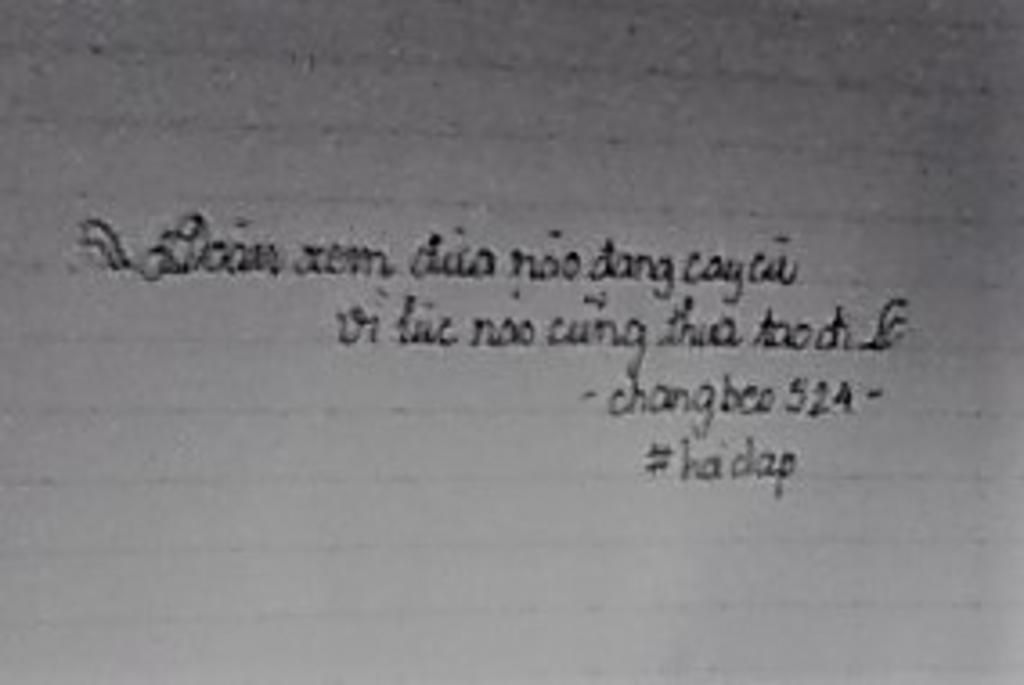 Đoán xem đứa nào đang cay cú
vì lúc nào cũng thua tao đi
- changbeo 524 -
# hỏi đáp